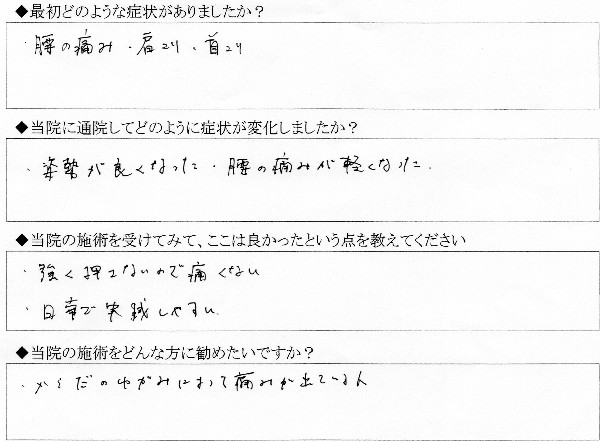 ◆最初どのような症状がありましたか？
・腰の痛み・肩こり・首こり
◆当院に通院してどのように症状が変化しましたか？
・姿勢が良くなった・腰の痛みが軽くなった.
◆当院の施術を受けてみて、ここは良かったという点を教えてください
・強く押さないので痛くない
・日常で実践しやすい
◆当院の施術をどんな方に勧めたいですか？
・からだのゆがみによって痛みが出ている人